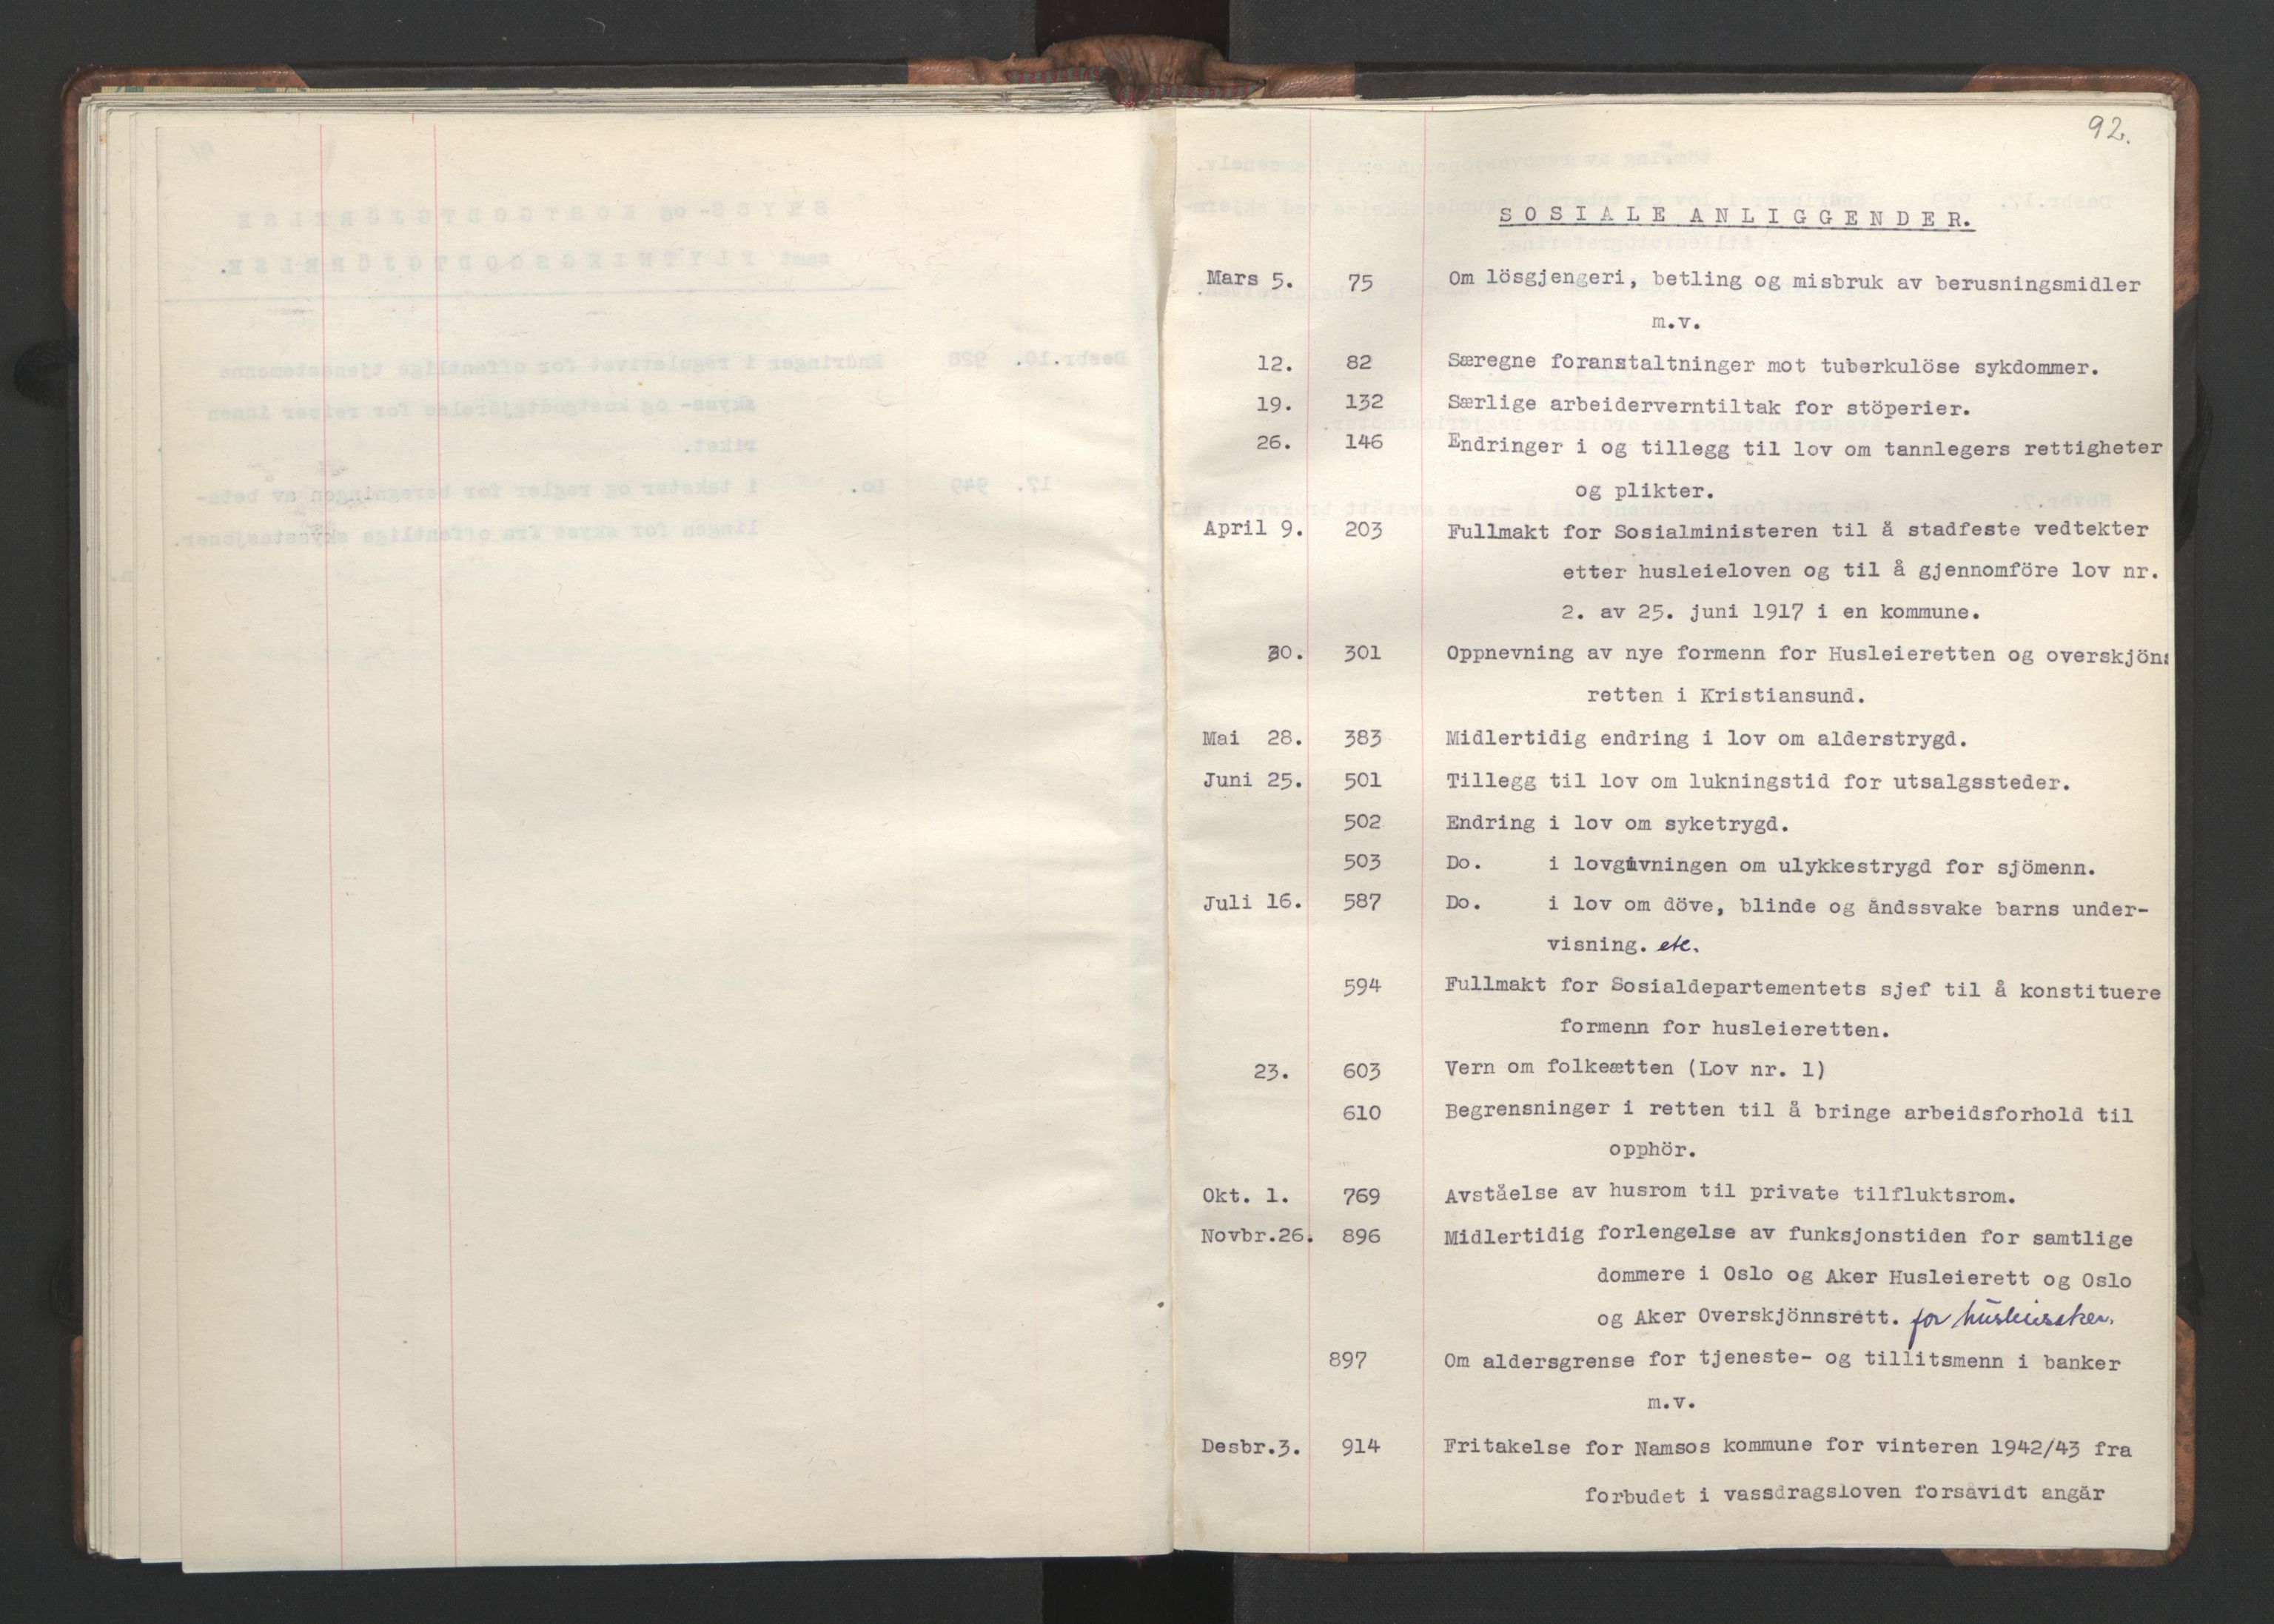 92.
SOSIALE ANLIGGENDER.
Mars 5. 75 Om lösgjengeri, betling og misbruk av berusningsmidler
m.v.
12. 82 Særegne foranstaltninger mot tuberkulöse sykdommer.
19. 132 Særlige arbeiderverntiltak for stöperier.
26. 146 Endringer i og tillegg til lov om tannlegers rettigheter
og plikter.
April 9. 203 Fullmakt for Sosialministeren til å stadfeste vedtekter
etter husleieloven og til å gjennomföre lov nr.
2. av 25. juni 1917 i en kommune.
30. 301 Oppnevning av nye formenn for Husleieretten og overskjöns
retten i Kristiansund.
Mai 28. 383 Midlertidig endring i lov om alderstrygd.
Juni 25. 501 Tillegg til lov om lukningstid for utsalgssteder.
502 Endring i lov om syketrygd.
503 Do. i lovgivningen om ulykkestrygd for sjömenn.
Juli 16. 587 Do. i lov om döve, blinde og åndssvake barns under-
visning. etc.
594 Fullmakt for Sosialdepartementets sjef til å konstituere
formenn for husleieretten.
23. 603 Vern om folkeætten (Lov nr. 1)
610 Begrensninger i retten til å bringe arbeidsforhold til
opphör.
Okt. 1. 769 Avståelse av husrom til private tilfluktsrom.
Novbr.26. 896 Midlertidig forlengelse av funksjonstiden for samtlige
dommere i Oslo og Aker Husleierett og Oslo
og Aker Overskjönnsrett. for husleiesaker.
897 Om aldersgrense for tjeneste- og tillitsmenn i banker
m.v.
Desbr.3. 914 Fritakelse for Namsos kommune for vinteren 1942/43 fra
forbudet i vassdragsloven forsåvidt angår